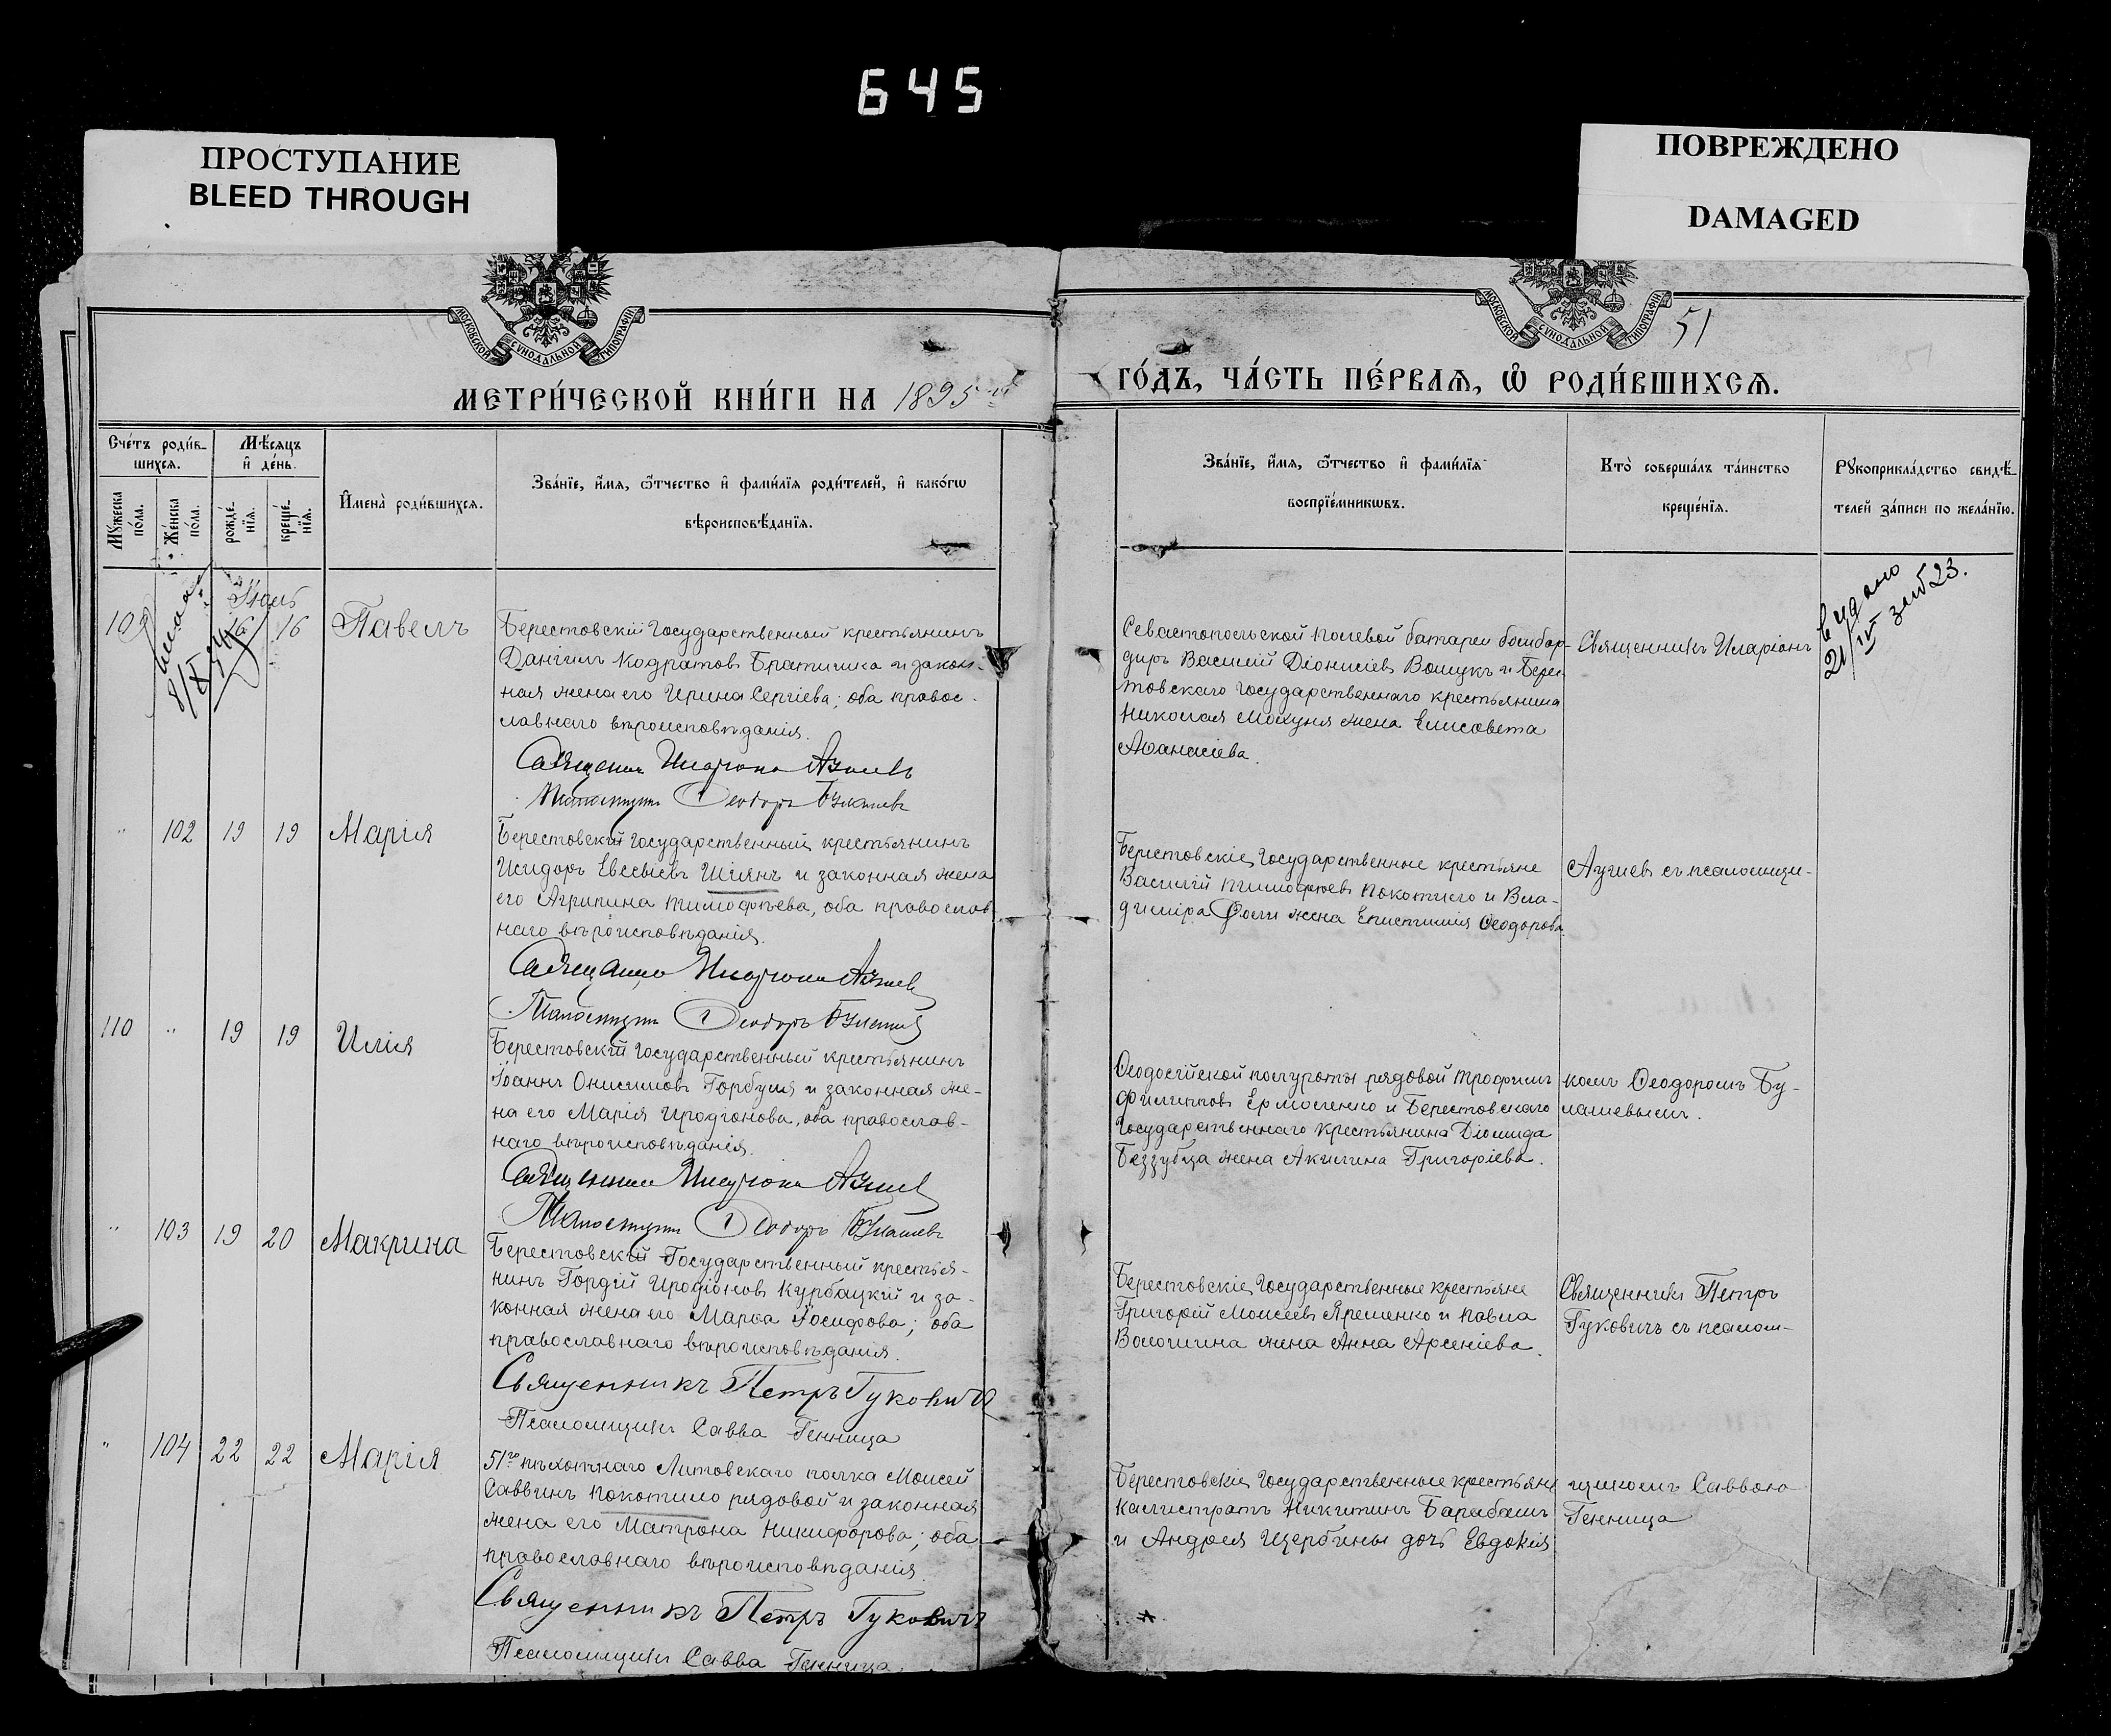 645
ПРОСТУПАНИЕ
BLEED THROUGH
ПОВРЕЖДЕНО
DAMAGED
МОСКОВСКОЙ СѴНОДАЛЬНОЙ ТИПОГРАФІИ
МОСКОВСКОЙ СѴНОДАЛЬНОЙ ТИПОГРАФІИ
51
МЕТРИ́ЧЕСКОЙ КНИ́ГИ НА 1895
ГО́ДЪ, ЧА́СТЬ ПЕ́РВАѦ, Ѡ҆ РОДИ́ВШИХСѦ.
Сче́тъ роди́в-
шихсѧ.
Мѣ́сяцъ
и҆ де́нь.
Мꙋ́жеска
по́ла.
Же́нска
по́ла.
рожде́-
нїѧ.
креще́-
нїѧ.
И҆мена̀ роди́вшихсѧ.
Зва́нїе, и҆́мѧ, ѻ҆́тчество и҆ фами́лїѧ роди́телей, и҆ како́гѡ
вѣроисповѣ́данїѧ.
Зва́нїе, и҆́мѧ, ѻ҆́тчество и҆ фами́лїѧ
воспрїе́мникѡвъ.
Кто̀ соверша́лъ та́инство
креще́нїѧ.
Рꙋкоприкла́дство свидѣ́-
телей за́писи по жела́нїю.
Іюль
16 16 Павелъ
Берестовскій Государственный крестьянинъ
Даніилъ Кодратовъ Братишка и закон-
ная жена его Ирина Сергіева; оба правос-
лавнаго вѣроисповѣданія.
Священникъ Иларіонъ
Псаломщикъ Ѳеодоръ Булашевъ
Севастопольской полевой батареи бомбар-
диръ Василій Діонисіевъ Ващукъ и Берес-
товскаго Государственнаго крестьянина
Николая жена Елисавета
Аѳанасіева.
Священникъ Иларіонъ
выдано
21/IV 23.
" 102 19 19 Марія
Берестовскій Государственный крестьянинъ
Исидоръ Евсевіевъ Шіянъ и законная жена
его Агрипина Тимофѣева, оба православ
наго вѣроисповѣданія.
Священникъ Иларіонъ
Псаломщикъ Ѳеодоръ Булашевъ
Берестовскіе Государственные крестьяне
Василій Тимофѣевъ Покотило и Вла-
диміра жена Епистимія Ѳеодорова
съ псаломщи-
110 " 19 19 Илія
Берестовскій Государственный крестьянинъ
Іоаннъ Онисимовъ Горбуля и законная же-
на его Марія Иродіонова, оба православ-
наго вѣроисповѣданія.
Священникъ Иларіонъ
Псаломщикъ Ѳеодоръ Булашевъ
Ѳеодосійской полуроты рядовой Трофимъ
Филиповъ Ермоленко и Берестовскаго
Государственнаго крестьянина Діомида
Беззубца жена Акилина Григоріева.
комъ Ѳеодоромъ Бу-
лашевымъ.
" 103 19 20 Макрина
Берестовскій Государственный крестья-
нинъ Гордій Иродіоновъ Курбацкій и за-
конная жена его Марѳа Іосифова; оба
православнаго вѣроисповѣданія.
Священникъ Петръ Гуковичъ
Псаломщикъ Савва Генница
Берестовскіе Государственные крестьяне
Григорій Моисеевъ Яременко и Павла
Волошина жена Анна Арсеніева.
Священникъ Петръ
Гуковичъ съ псалом-
" 104 22 22 Марія
51го пѣхотнаго Литовскаго полка Моисей
Саввинъ Покотило рядовой и законная
жена его Матрона Никифорова; оба
православнаго вѣроисповѣданія.
Священникъ Петръ Гуковичъ
Псаломщикъ Савва Генница
Берестовскіе Государственные крестьяне
Каллистратъ Никитинъ Барабашъ
и Андрея Щербины дочь Евдокія
щикомъ Саввою
Генница